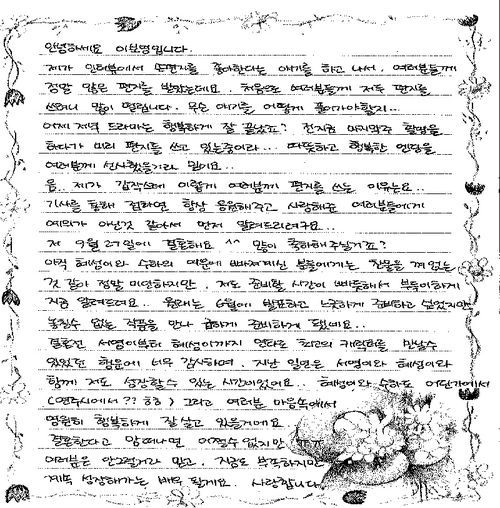 안녕하세요 이보영입니다.
제가 인터뷰에서 손편지를 좋아한다는 얘기를 하고 나서, 여러분들께
정말 많은 편지를 받았는데요. 처음으로 여러분들께 저도 편지를
쓰려니 많이 떨립니다. 무슨 얘기를 어떻게 풀어가야할지...
어제 저녁 드라마는 행복하게 잘 끝났죠? 전 지금 마지막주 촬영을
하다가 미리 편지를 쓰고 있는중이라... 따뜻하고 행복한 엔딩을
여러분께 선사했을거라 믿어요..
음.. 제가 갑작스레 이렇게 여러분께 편지를 쓰는 이유는요..
기사를 통해 접하면 항상 응원해주고 사랑해준 여러분들에게
예의가 아닌것 같아서 먼저 알려드리려구요..
저 9월 27일에 결혼해요 ^^ 많이 축하해주실거죠?
아직 혜성이와 수하의 여운에 빠져계신 분들에게는 찬물을 껴얹는
것 같아 정말 미안하지만, 저도 준비할 시간이 빠듯해서 부득이하게
지금 알려드려요.. 원래는 6월에 발표하고 느긋하게 준비하고 싶었지만
놓칠수 없는 작품을 만나 급하게 준비하게 됐네요..
결론은 서영이부터 혜성이까지 연타로 최고의 캐릭터를 만날수
있었던 행운에 너무 감사하며, 지난 일년은 서영이와 혜성이와
함께 저도 성장할수 있는 시간이었어요.. 혜성이와 수하도 어딘가에서
(연주시에서?? ㅎㅎ) 그리고 여러분 마음속에서
영원히 행복하게 잘 살고 있을거에요
결혼한다고 맘 떠나면 어쩔수 없지만
여러분은 안그럴거라 믿고, 지금도 부족하지만
계속 성장해가는 배우 될게요. 사랑합니다